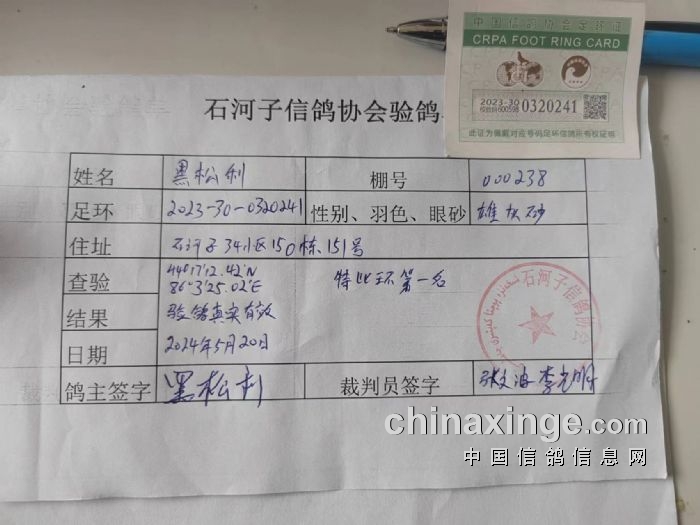 中国信鸽协会足环证
CRPA FOOT RING CARD
2023-30 0320241
此证为佩戴对应号码足环信鸽所有权证明
石河子信鸽协会验鸽
姓名 黑松利 棚号 000238
足环 2023-30-0320241 性别、羽色、眼砂 雄灰砂
住址 石河子34小区150栋151号
查验 44°17'12.42"N 特比环第一名
86°3'25.02"E
结果 验鸽真实有效
日期 2024年5月20日
石河子信鸽协会
鸽主签字 黑松利 裁判员签字
chinaxinge.com
中国信鸽信息网